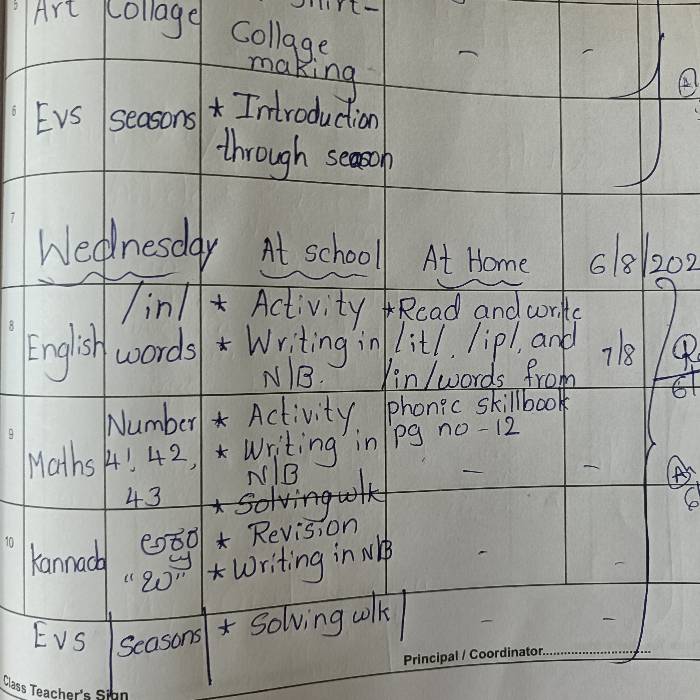 5 Art Collage
Collage
making
- -
6 EVS seasons * Introduction
through season
7
Wednesday At school At Home 6/8/202
8 English /in/ words * Activity
* Writing in
N/B.
*Read and write
/it/, /ip/, and
/in/words from
phonic skillbook
pg no - 12
7/8
9 Maths Number
41, 42,
43
* Activity
* Writing in
N/B
* Solving wlk
- -
10 Kannada
* Revision
* Writing in NB
- -
EVS Seasons * Solving wlk - -
Principal / Coordinator
Class Teacher's Sign